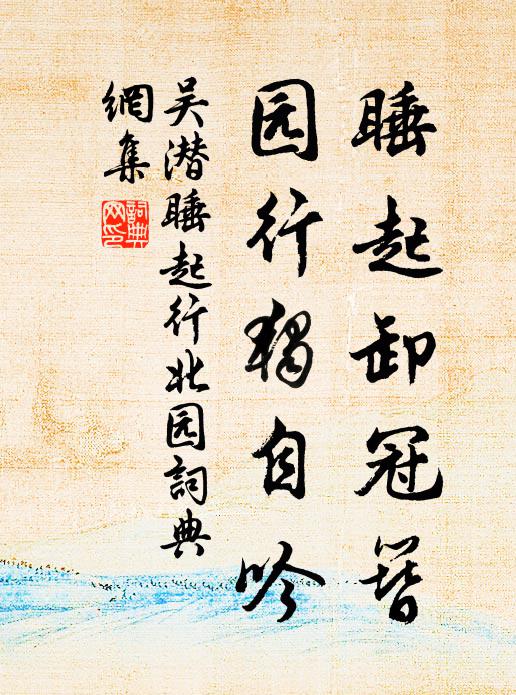 睡起卸冠簪
园行独自吟
吴潜睡起行北园詞典
網集
詞典网印